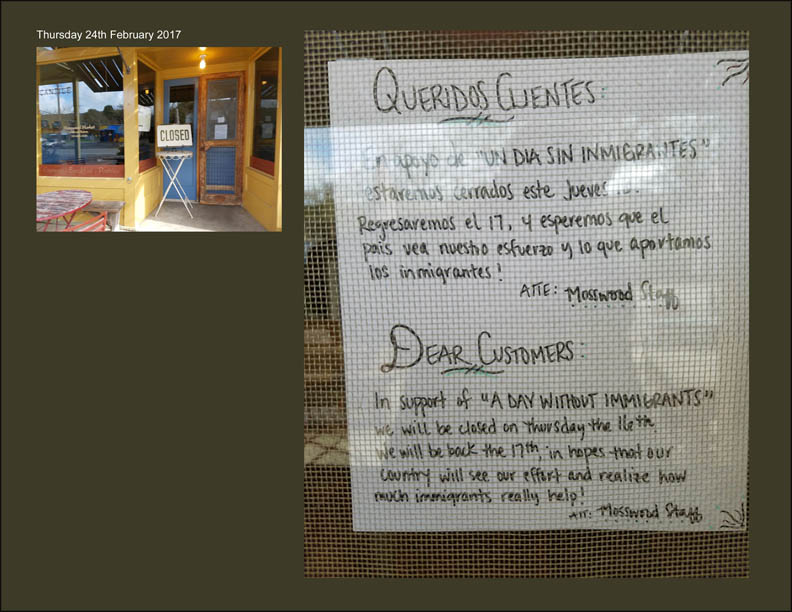 Thursday 24th February 2017
CANDLE
CLOSED
QUERIDOS CLIENTES:
En apoyo de "UN DIA SIN INMIGRANTES"
estaremos cerrados este Jueves
Regresaremos el 17, y esperemos que el
pais vea nuestro esfuerzo y lo que aportamos
los inmigrantes!
ATTE: Mosswood Staff
DEAR CUSTOMERS:
In support of "A DAY WITHOUT IMMIGRANTS"
we will be closed on thursday the 16th.
We will be back the 17th, in hopes that our
country will see our effort and realize how
much immigrants really help!
ATT: Mosswood Staff